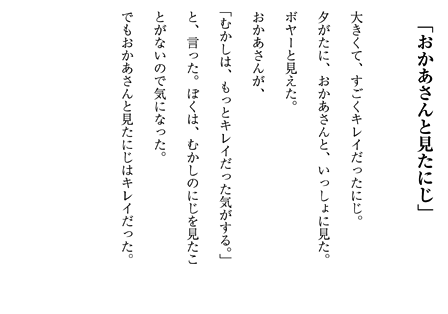 「おかあさんと見たにじ」
大きくて、すごくキレイだったにじ。
夕がたに、おかあさんと、いっしょに見た。
ボヤーと見えた。
おかあさんが、
「むかしは、もっとキレイだった気がする。」
と、言った。ぼくは、むかしのにじを見たこ
とがないので気になった。
でもおかあさんと見たにじはキレイだった。